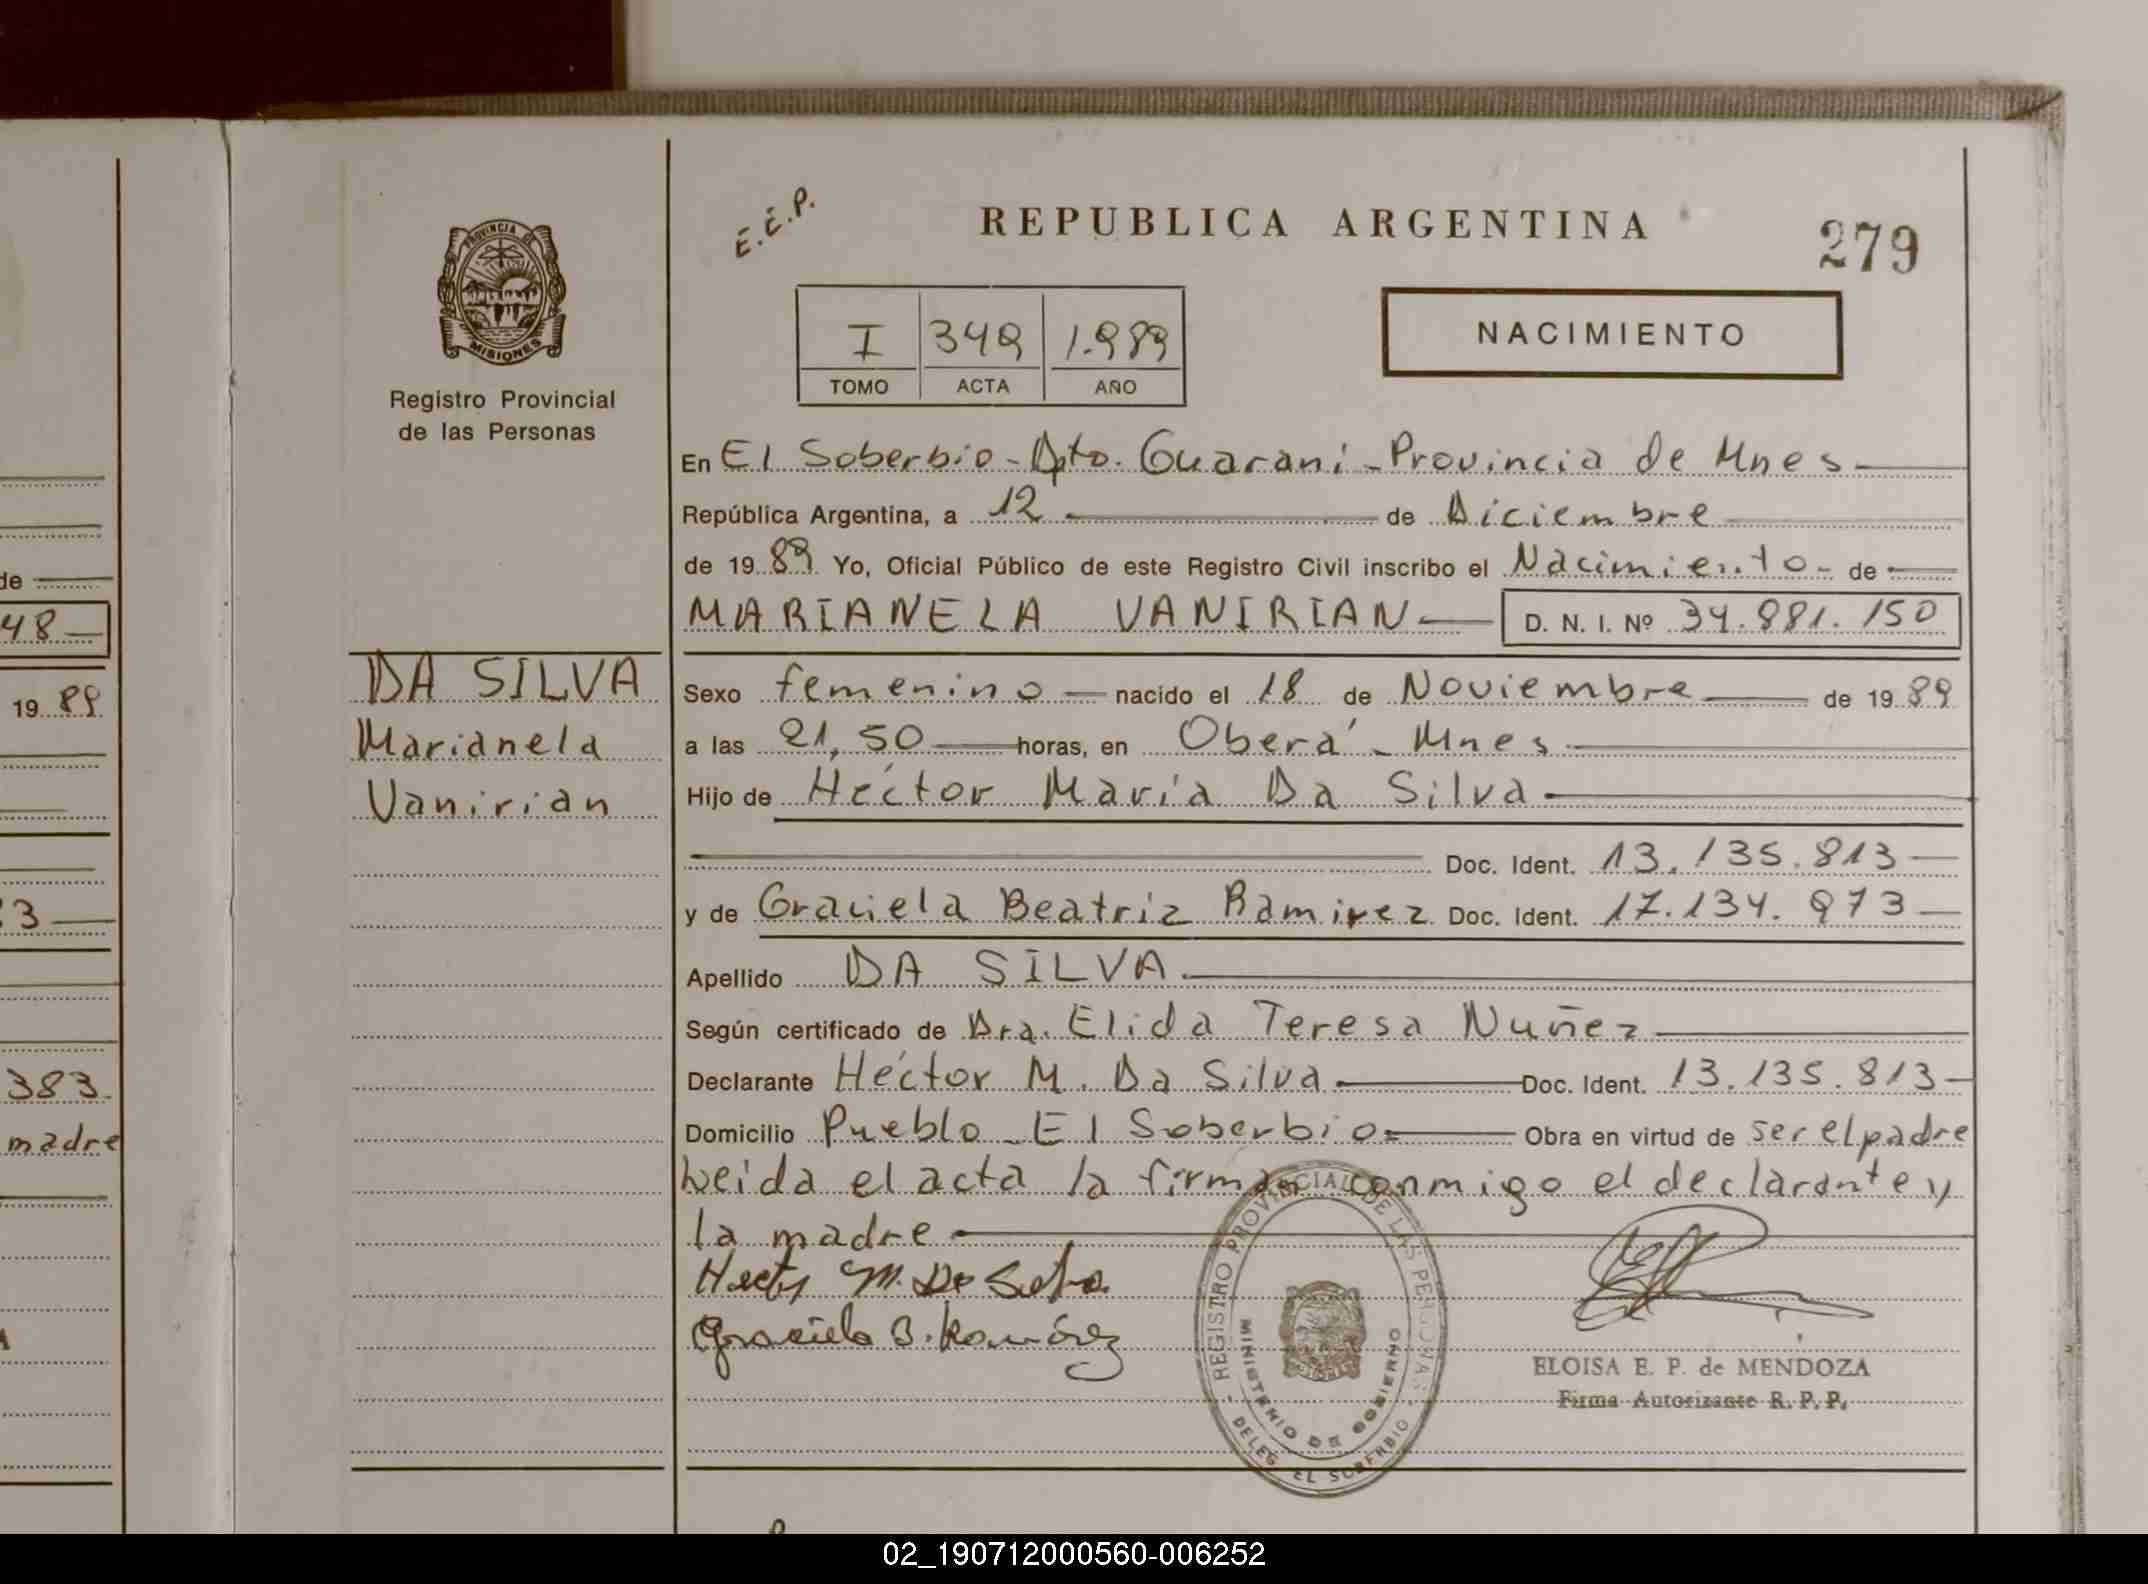 E.E.P.
REPUBLICA ARGENTINA
279
PROVINCIA DE
MISIONES
Registro Provincial
de las Personas
I 349 1.989
TOMO ACTA AÑO
NACIMIENTO
En El Soberbio - Dpto. Guaraní - Provincia de Mnes
República Argentina, a 12 de Diciembre
de 19 89 Yo, Oficial Público de este Registro Civil inscribo el Nacimiento - de
MARIANELA VANIRIAN D. N. I. Nº 34.881.150
DA SILVA
Marianela
Vanirian
Sexo femenino nacido el 18 de Noviembre de 19 89
a las 21,50 horas, en Oberá - Mnes
Hijo de Héctor María Da Silva
Doc. Ident. 13.135.813
y de Graciela Beatriz Ramirez Doc. Ident. 17.134.973
Apellido DA SILVA
Según certificado de Dra. Elida Teresa Nuñez
Declarante Héctor M. Da Silva Doc. Ident. 13.135.813
Domicilio Pueblo - El Soberbio Obra en virtud de ser el padre
Leida el acta la firman conmigo el declarante y
la madre
Hector M. Da Silva
Graciela B. Ramírez
REGISTRO PROVINCIAL DE LAS PERSONAS
MINISTERIO DE GOBIERNO
DELEG. EL SOBERBIO
ELOISA E. P. de MENDOZA
Firma Autorizante R. P. P.
de
48
19 89
3
383
madre
02_190712000560-006252